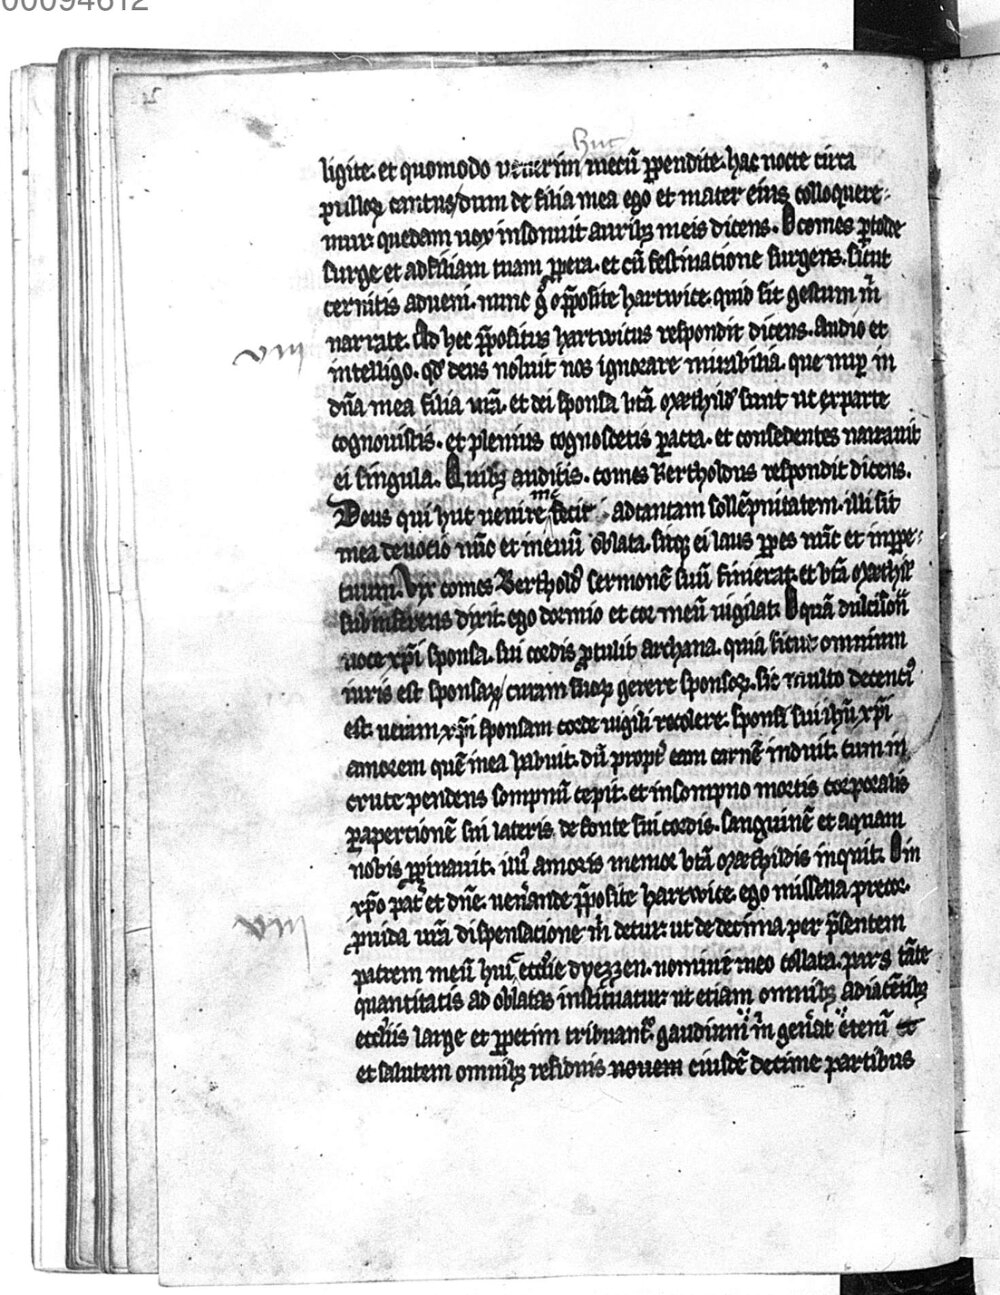 00094612
huc
ligite. et quomodo uenerim mecū ꝑpendite. hac nocte circa
pulloꝝ cantus / dum de filia mea ego et mater eius colloquere-
mur. quedam uox insonuit auribꝫ meis dicens. O comes ꝑtolde
surge et ad filiam tuam ꝓpera. et cū festinacione surgens. sicut
cernitis adueni. nunc g̊ o p̄posite hartwice. quid sit gestum m̄
narrate. Ad hec p̄positus hartwicus respondit dicens. Audio et
viij
intelligo. qd̓ deus noluit nos ignorare mirabilia. que nuꝑ in
dn̄a mea filia ur̄a. et dei sponsa bt̄a mæthild̓ sunt ut ex parte
cognouistis. et plenius cognoscetis ꝑacta. et consedentes narrauit
ei singula. Quibꝫ auditis. comes Bertholdus respondit dicens.
Deus qui huc uenire me fecit. ad tantam sollēpnitatem. illi sit
mea deuocio nūc et in euū oblata. sitqꝫ ei laus ꝑpes nūc et in ꝑpe-
tuum. Vix comes Berthold̓ sermonē suū finierat. et bt̄a mæthil̓
subinferens dixit. ego dormio et cor meū uigilat. O quā dulcisoñ
uoce xp̄i sponsa. sui cordis ꝓtulit archana. quia sicut omnium
iuris est sponsaꝝ / curam suoꝝ gerere sponsoꝝ. sic multo decenci᷒
est. ueram xp̄i sponsam corde uigili recolere. sponsi sui ihū xp̄i
amorem quē in ea habuit. dū propt̓ eam carnē induit. cum in
cruce pendens sompnū cepit. et in sompno mortis corporalis
ꝑ apercionē sui lateris. de fonte sui cordis. sanguinē et aquam
nobis ꝓpinauit. illi᷒ amoris memor bt̄a mæthildis inquit. O in
xp̄o pat̓ et dn̄e. uen̄ande p̄posite hartwice. ego misella precor.
viij
ꝓuida ur̄a dispensacione m̄ detur. ut de decima per p̄sentem
patrem meū hui᷒ eccl̓ie dyezzen. nomine meo collata. pars tāte
quantitatis ad oblatas instituatur. ut etiam omnibꝫ adiacētibꝫ
eccl̓iis large et ꝑpetim tribuant᷑. gaudium in gen̄at et̓enū
et salutem omnibꝫ residuis nouem eiusdē decime partibus